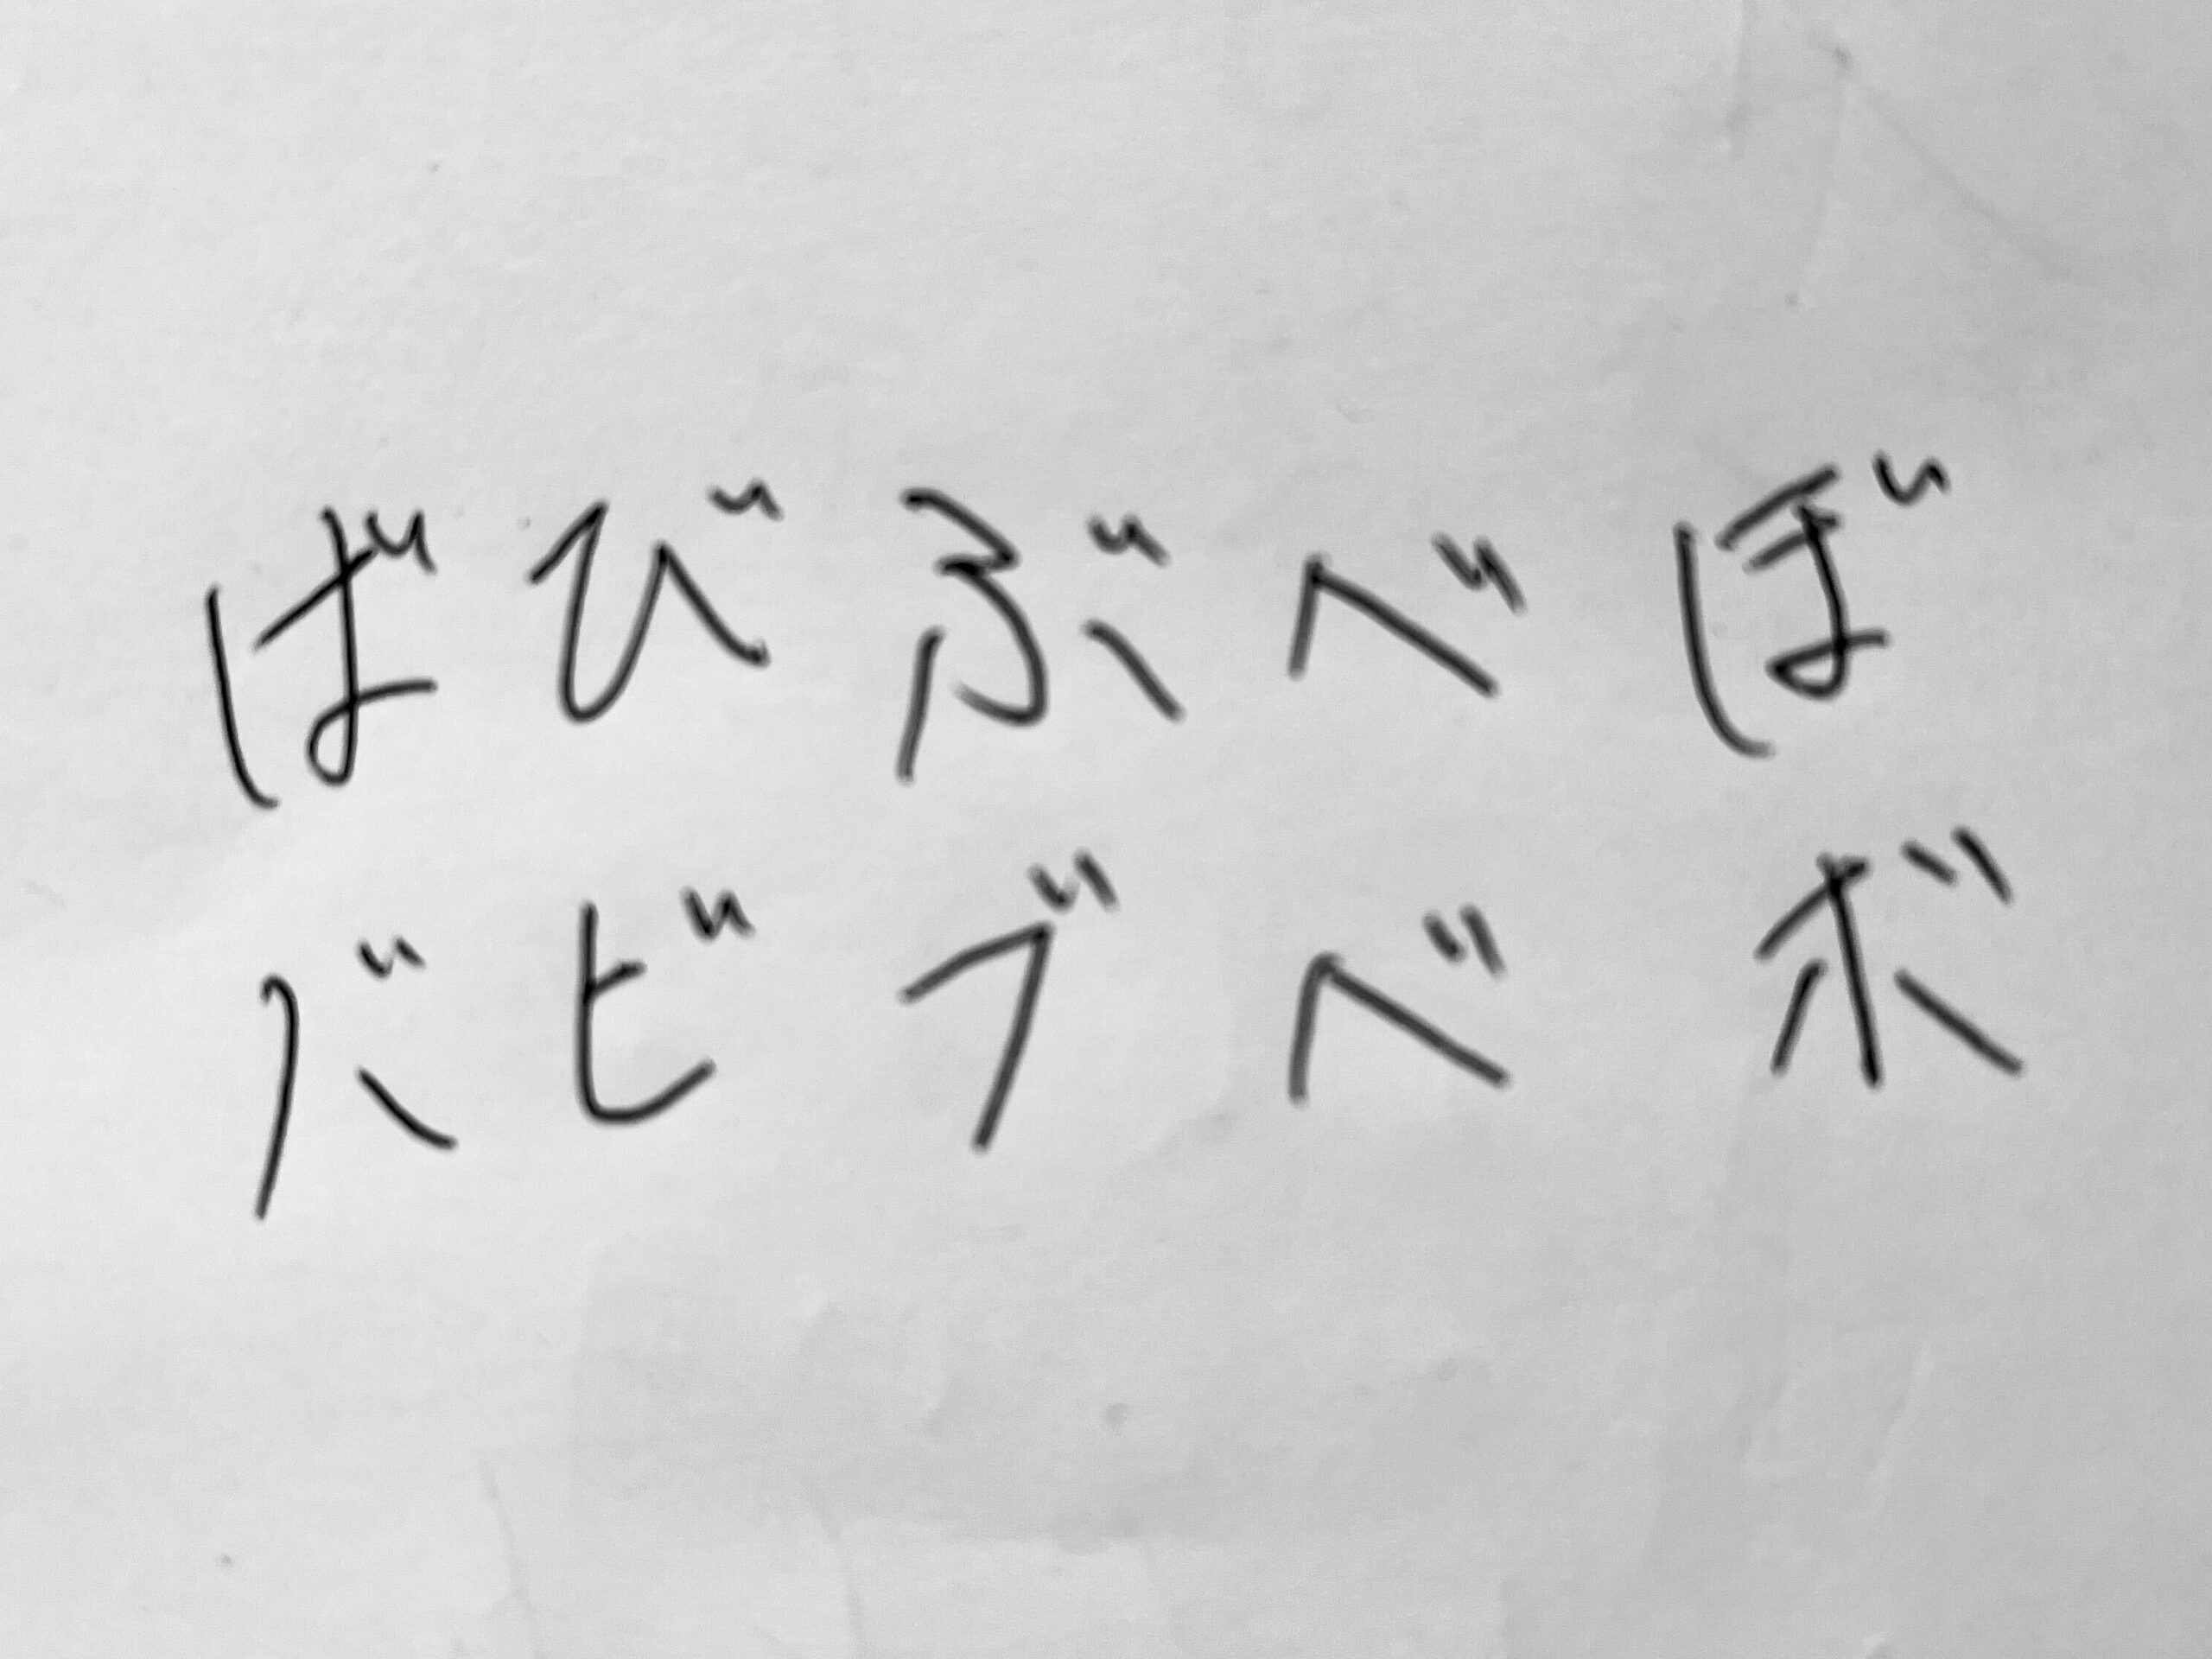 ばびぶべぼ
バビブベボ